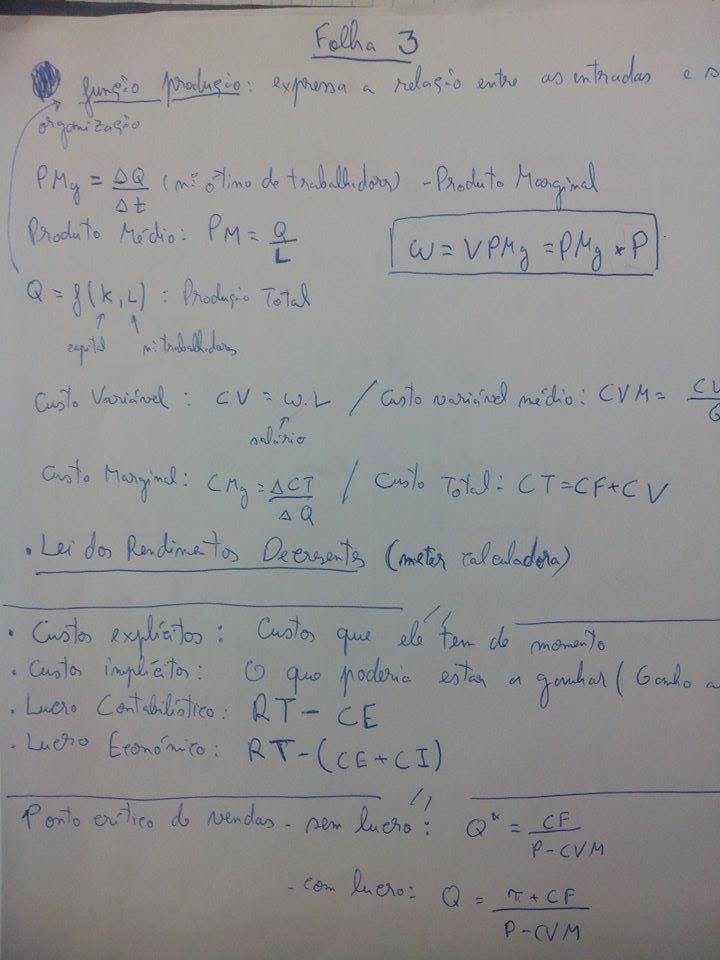 Folha 3
função produção: expressa a relação entre as entradas e s
organização
PMg = ΔQ/Δt (nº ótimo de trabalhadors) - Produto Marginal
Produto Médio: PM = Q/L
W = VPMg = PMg * P
Q = f(K, L) : Produção Total
capital nº trabalhadores
Custo Variável : CV = W.L / Custo variável médio: CVM = CV/
salário
Custo Marginal: CMg = ΔCT/ΔQ / Custo Total: CT = CF + CV
• Lei dos Rendimentos Decresentes (meter calculadora)
• Custos explícitos : Custos que ele tem de momento
• Custos implícitos : O que poderia estar a ganhar ( Ganho a
• Lucro Contabilístico : RT - CE
• Lucro Económico : RT - (CE + CI)
Ponto crítico de vendas - sem lucro : Q* = CF/P-CVM
- com lucro: Q = π + CF/P-CVM